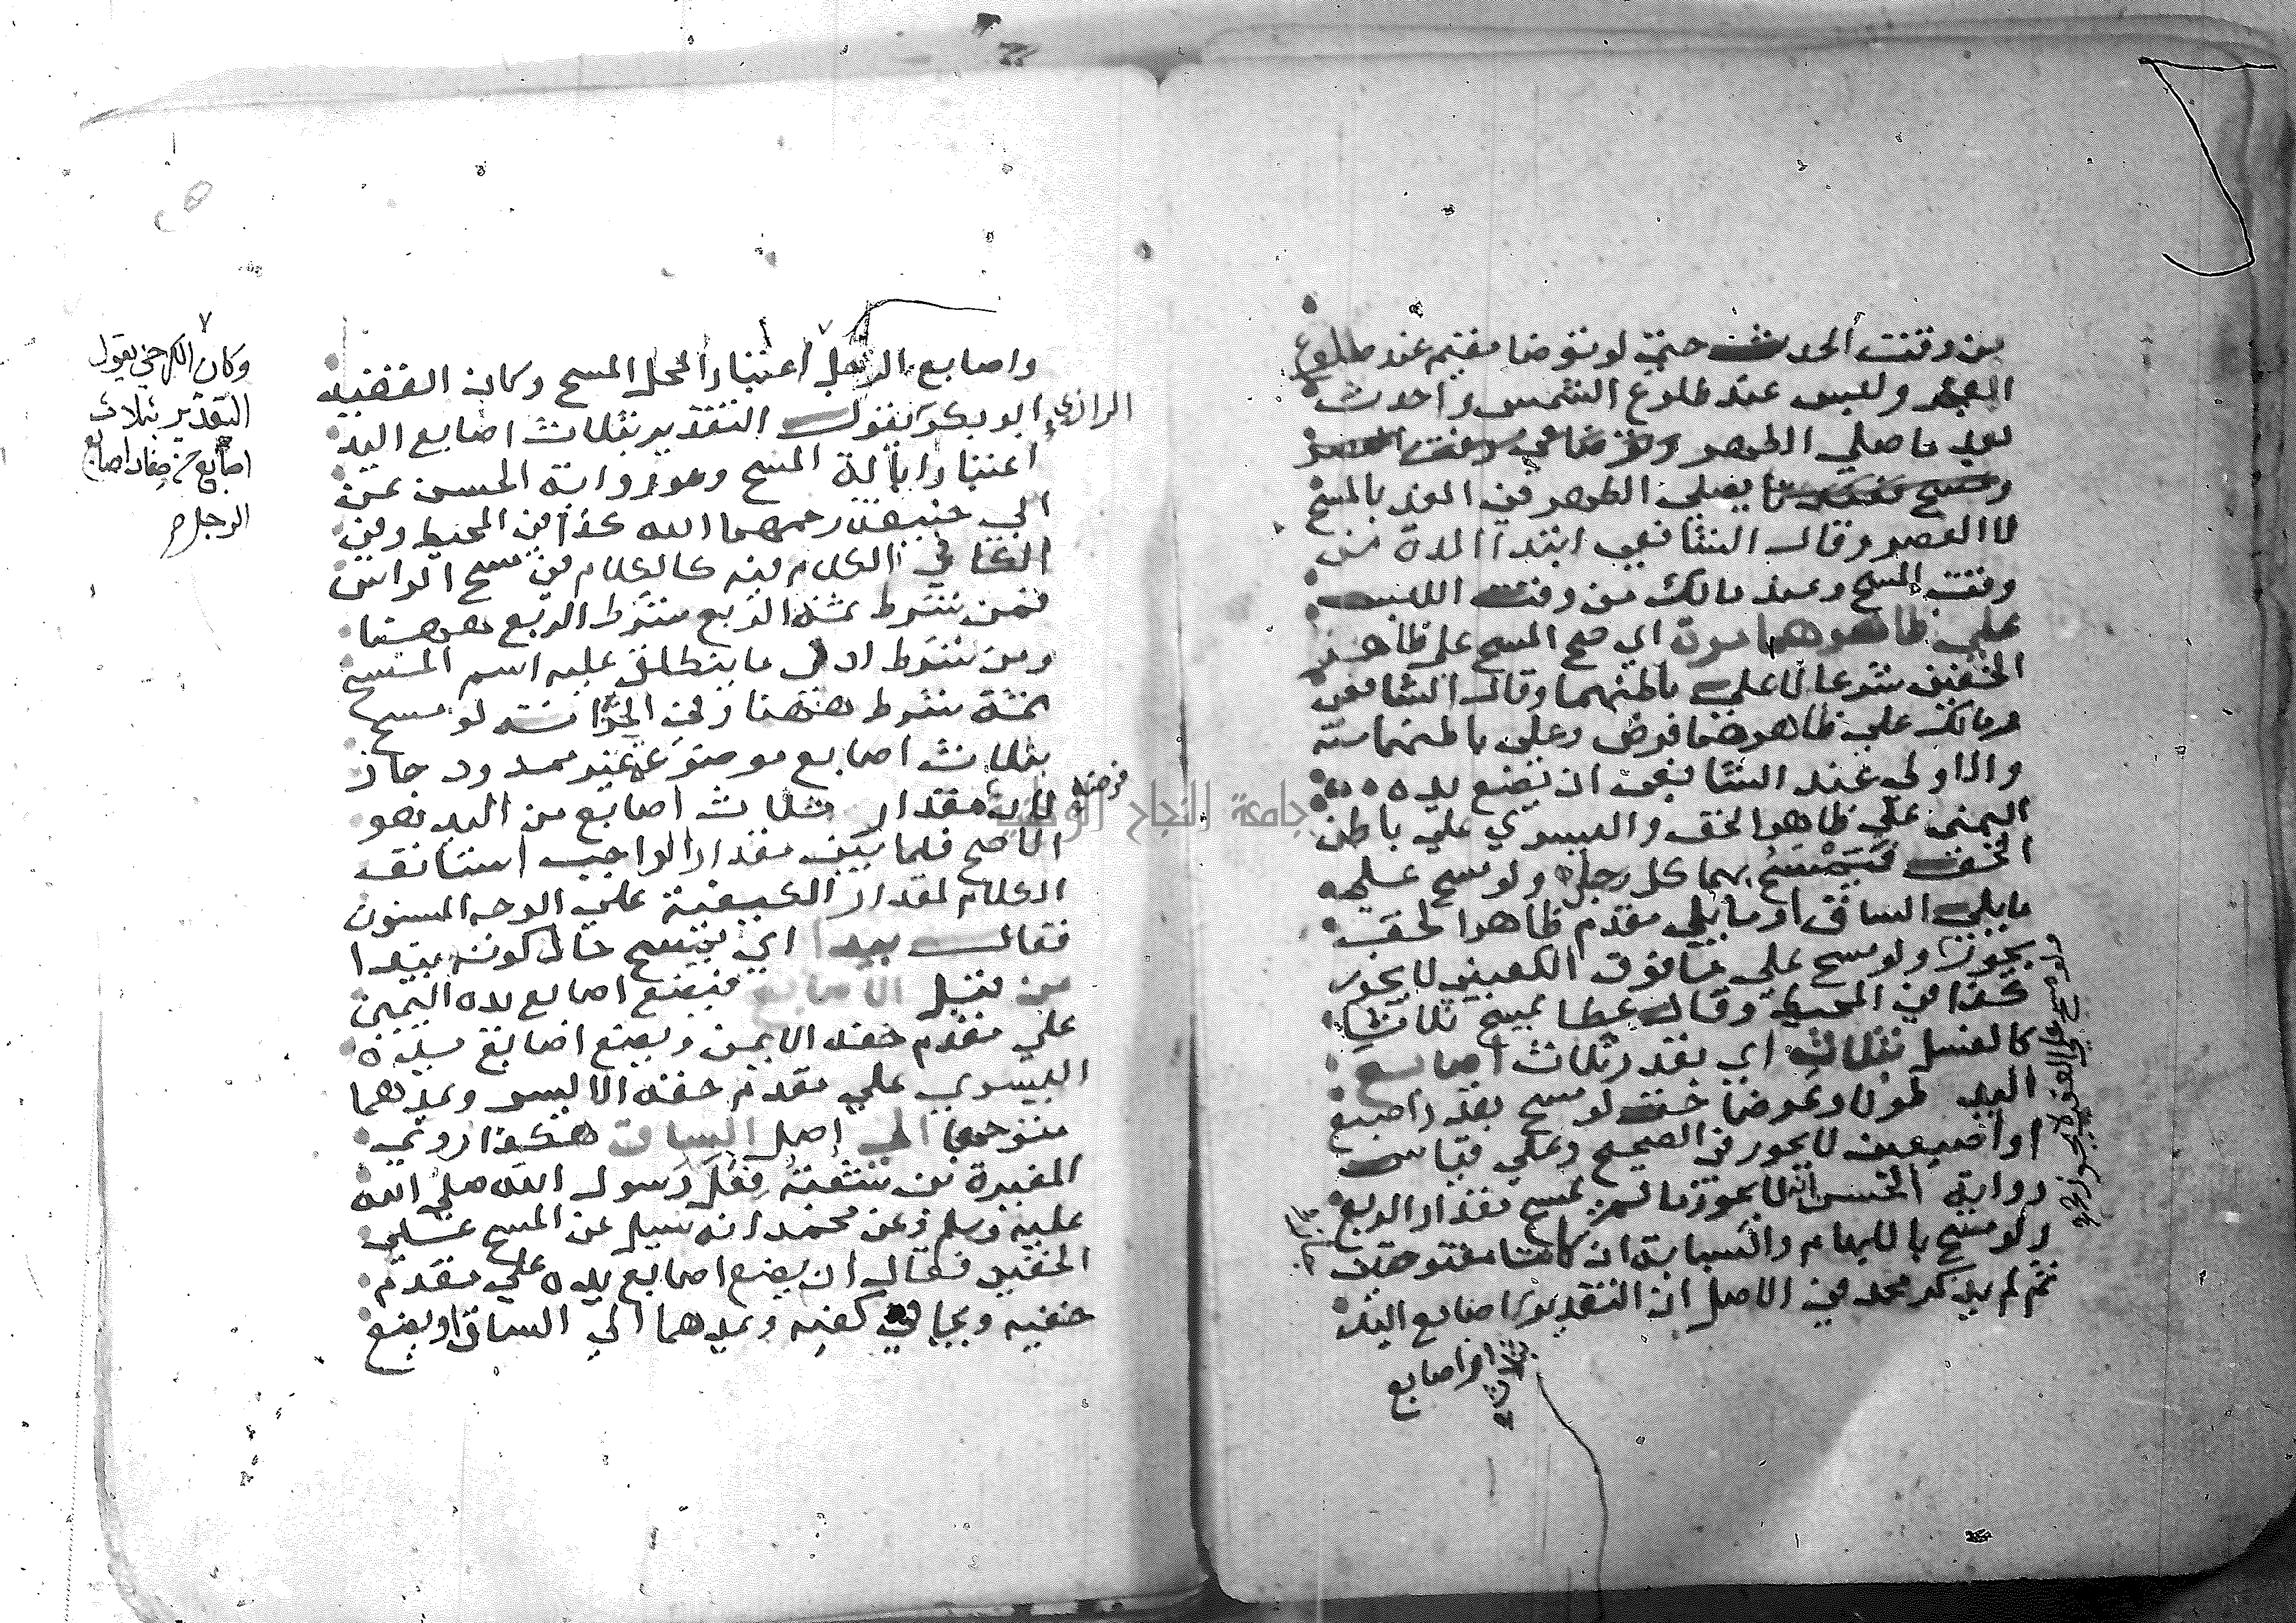 من وقت الحدث حتي لو توضا مقيم عند طلوع
الفجر ولبس عند طلوع الشمس واحدث
بعد ما صلي الظهر وتوضا في وقت العصر
ومسح بعد ما يصلي الظهر من الغد بالمسح
لا العصر وقال الشافعي ابتدا المدة من
وقت المسح وعند مالك من وقت اللبس
علي ظاهرهما مرة اي صح المسح علي ظاهر
الخفين شرعا لا علي باطنهما وقال الشافعي
ومالك علي ظاهرهما فرض وعلي باطنهما سنه
والاولي عند الشافعي ان يضع يده
اليمني علي ظاهر الخف واليسري علي باطن
الخف فيمسح بهما كل رجله ولو مسح علي
ما يلي الساق او ما يلي مقدم ظاهر الخف
يجوز ولو مسح علي ما فوق الكعبين لا يجوز
كذا في المحيط وقال عطا يمسح ثلاثا
كالغسل بثلاث اي بقدر ثلاث اصابع
اليد طولا وعرضا حتي لو مسح بقدر اصبع
او اصبعين لا يجوز في الصحيح وعلي قياس
رواية الحسن انه لا يجوز ما لم يمسح مقدار الربع
ولو مسح بالابهام والسبابة ان كانتا مفتوحتين
جاز
ثم لم يذكر محمد في الاصل ان التقدير باصابع اليد
ولو مسح علي العقب لا يجوز صح
واصابع الرجل اعتبارا لمحل المسح وكان الفقيه
ابو بكر الرازي يقول التقدير بثلاث اصابع اليد
اعتبارا بالة المسح وهو رواية الحسن عن
ابي حنيفة رحمهما الله كذا في المحيط وفي
الكافي الكلام فيه كالكلام في مسح الراس
فمن شرط ثمة الربع شرط الربع ههنا
ومن شرط ادني ما ينطلق عليه اسم المسح
ثمة شرط ههنا وفي الخزانة لو مسح
بثلاث اصابع موضوعة غير ممدود جاز
فرضه لان مقدار ثلاث اصابع من اليد هو
الاصح فلما بين مقدار الواجب استانف
الكلام لمقدار الكيفية علي الوجه المسنون
فقال يبدا اي يمسح حال كونه يبتدا
من قبل الاصابع فيضع اصابع يده اليمين
علي مقدم خفه الايمن ويضع اصابع يده
اليسري علي مقدم خفه الايسر ويمدهما
متوجها الي اصل الساق هكذا روي
المغيرة بن شعبة فعل رسول الله صلي الله
عليه وسلم وعن محمد انه سيل عن المسح علي
الخفين فقال ان يضع اصابع يده علي مقدم
خفيه ويجافي كفيه ويمدهما الي الساق او يضع
وكان الكرخي يقول
التقدير بثلاث
اصابع من اصابع
الرجل صح
جامعة النجاح الوطنية